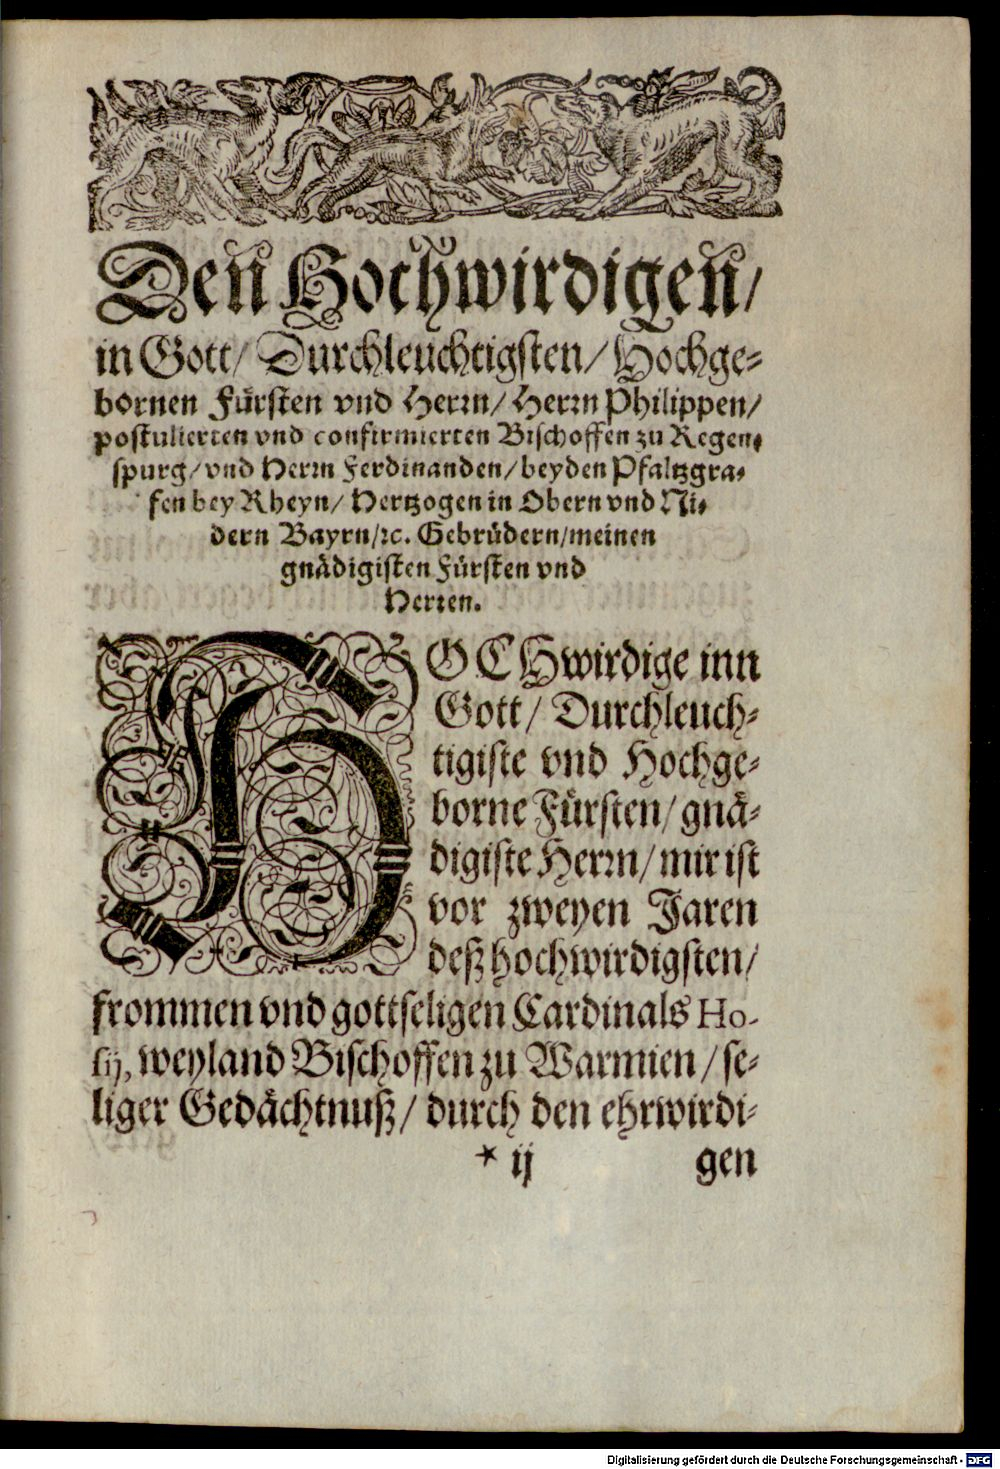 Den Hochwirdigen/
in Gott/ Durchleuchtigsten/ Hochge⸗
bornen Fürsten vnd Herrn/ Herrn Philippen/
postulierten vnd confirmierten Bischoffen zu Regen⸗
spurg/ vnd Herrn Ferdinanden/ beyden Pfaltzgra⸗
fen bey Rheyn/ Hertzogen in Obern vnd Ni⸗
dern Bayrn/ꝛc. Gebrüdern/ meinen
gnädigisten Fürsten vnd
Herren.
HOCHwirdige inn
Gott/ Durchleuch⸗
tigiste vnd Hochge⸗
borne Fürsten/ gnä⸗
digiste Herrn/ mir ist
vor zweyen Jaren
deß hochwirdigsten/
frommen vnd gottseligen Cardinals Ho-
sij, weyland Bischoffen zu Warmien/ se⸗
liger Gedächtnuß/ durch den ehrwirdi⸗
* ij gen
Digitalisierung gefördert durch die Deutsche Forschungsgemeinschaft - DFG